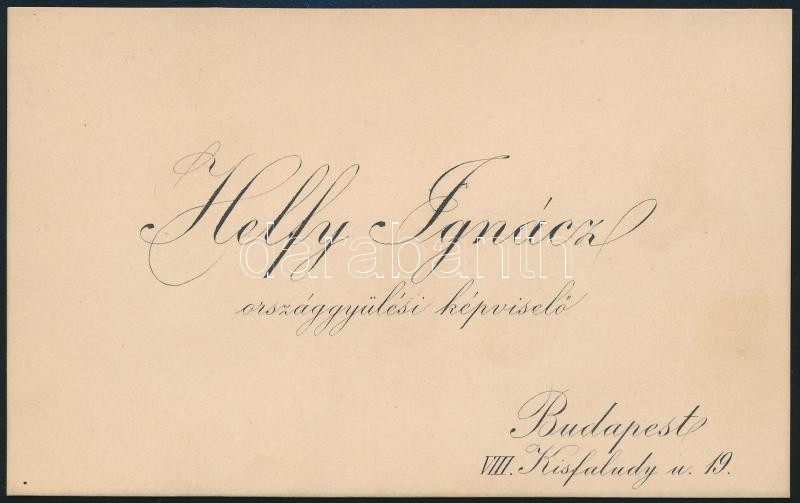 Helfy Ignácz
darabanth
országgyülési képviselő
Budapest
VIII. Kisfaludy u. 19.